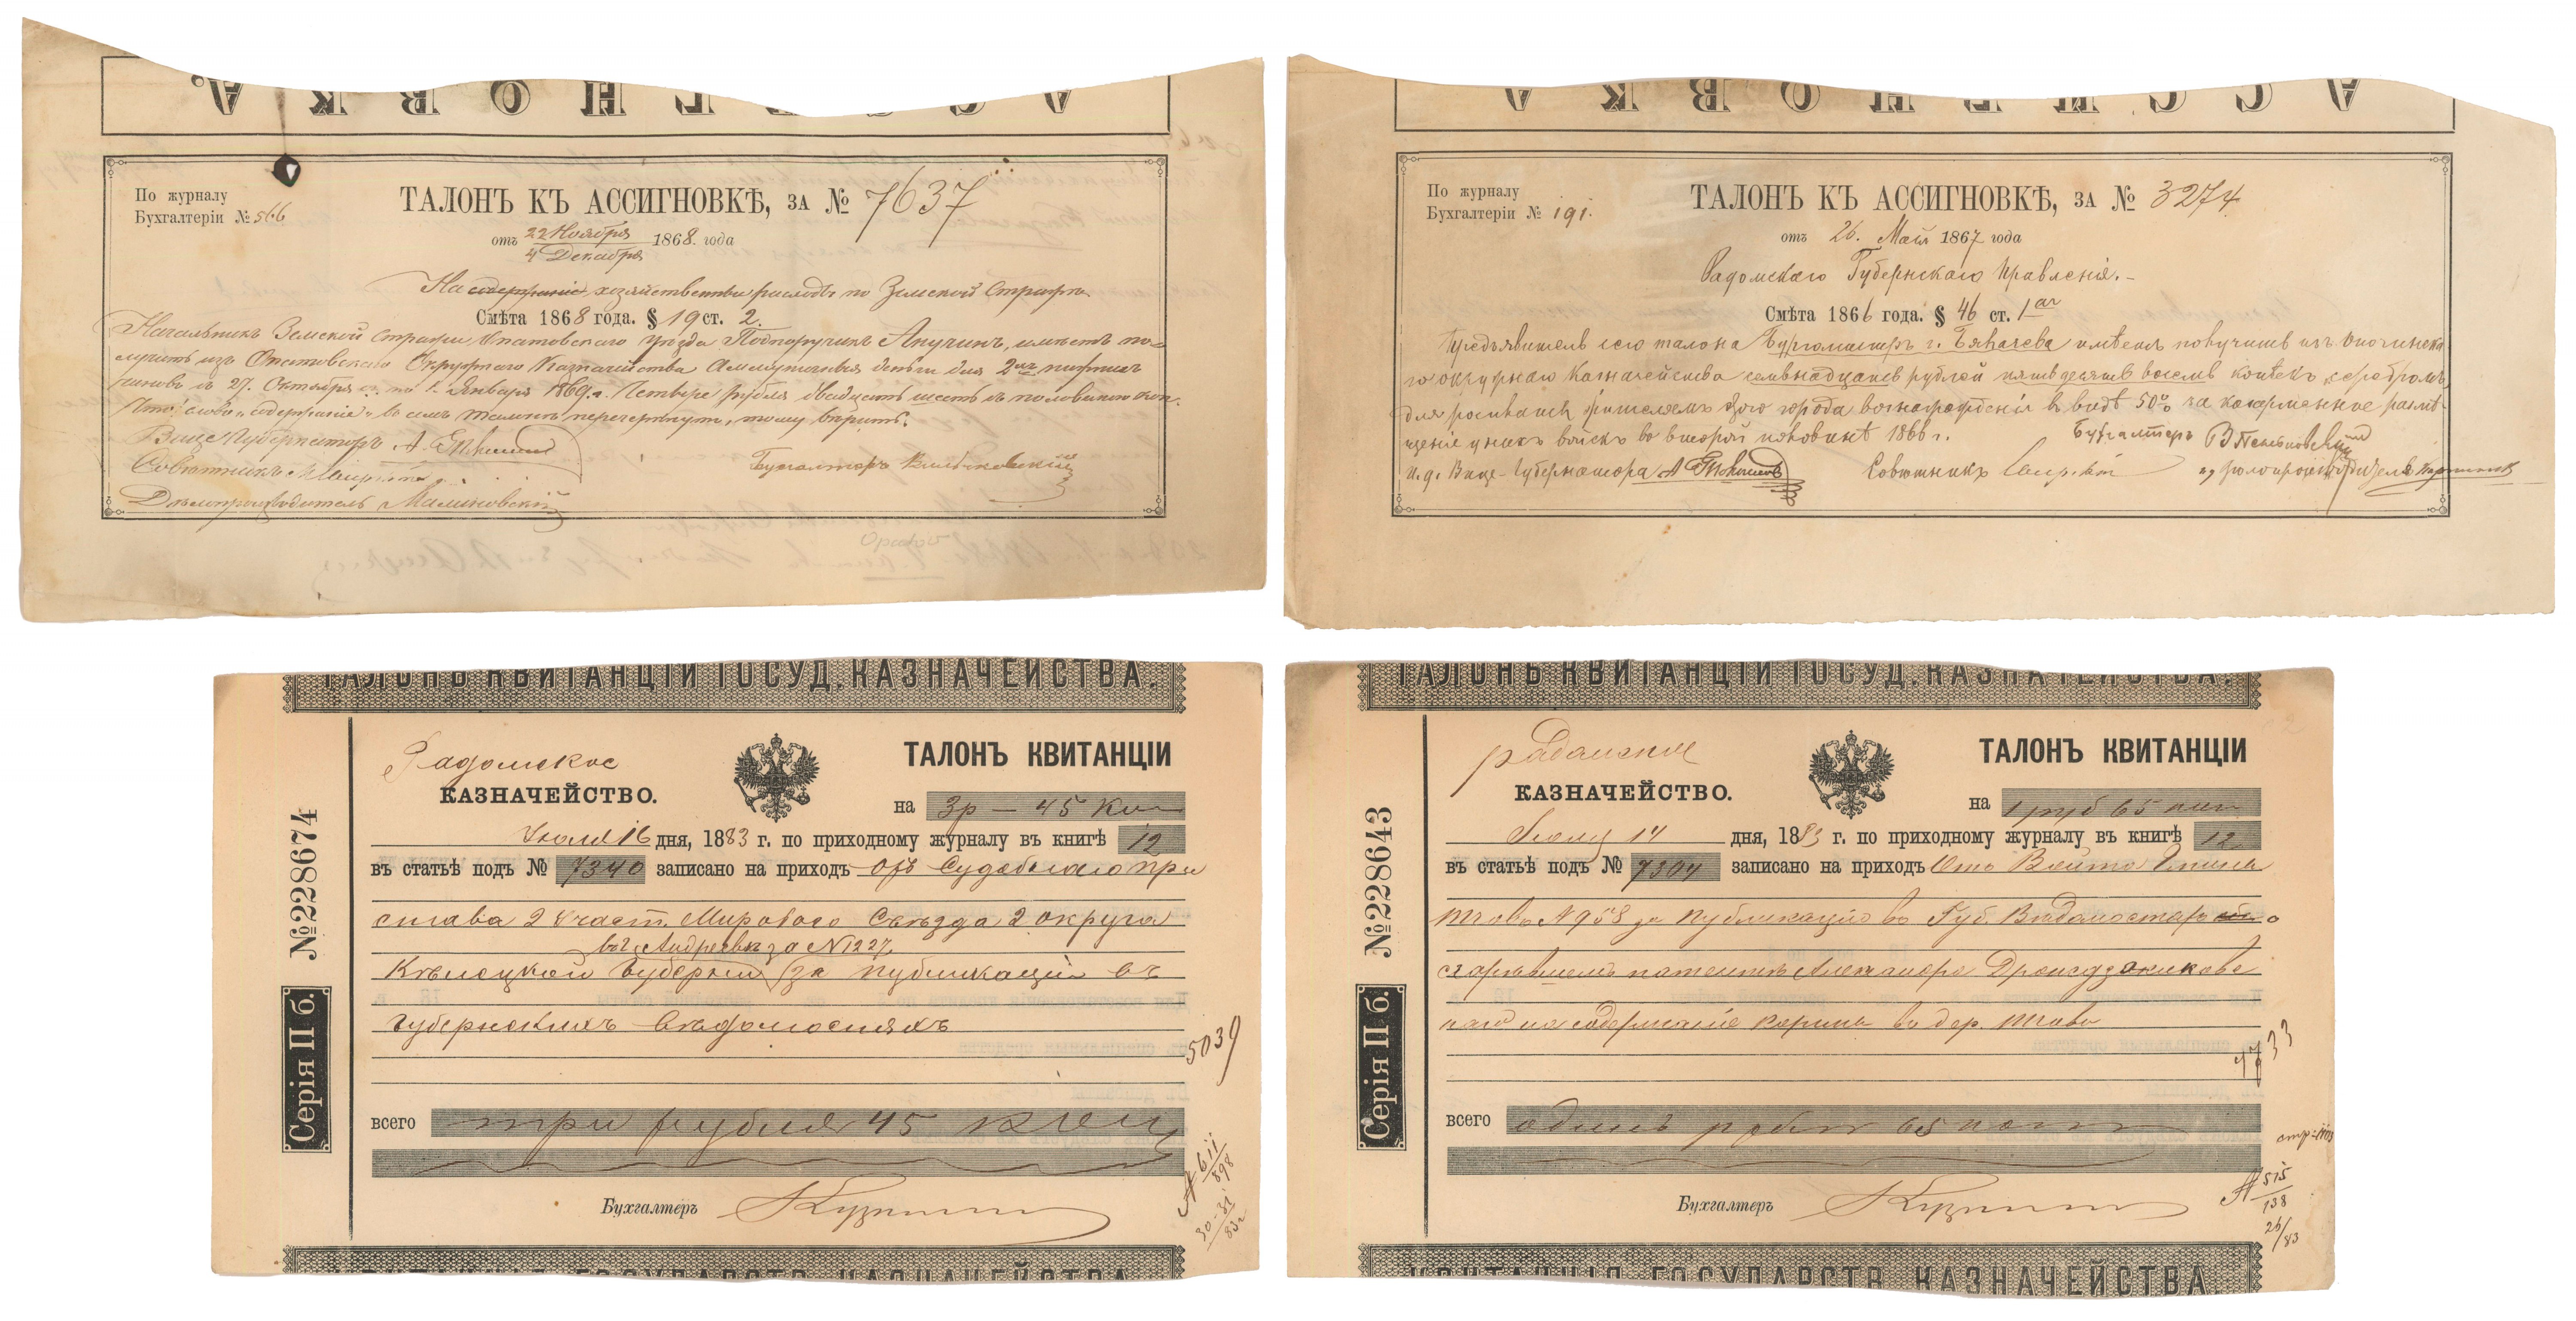 АССИГНОВКА.
По журналу
Бухгалтеріи № 566
ТАЛОНЪ КЪ АССИГНОВКѢ, за № 7637
отъ 22 Ноября 1868. года
4 Декабря
На содержаніе хозяйственные расходы по Земской Стражѣ
Смѣта 1868 года. § 19 ст. 2.
Начальникъ Земской Стражи Опатовскаго уѣзда Подпоручикъ Анучинъ, имѣетъ по=
лучить изъ Опатовскаго Окружнаго Казначейства Аммуничныя деньги для 2хъ
чиновъ съ 27. Октября по 1. Января 1869. г. Четыре рубля двадцать шесть съ половиною коп.
Что слово „содержаніе" въ семъ талонѣ перечеркнуто, тому вѣрить.
Вице Губернаторъ А.
Совѣтникъ
Бухгалтеръ
Дѣлопроизводитель Малиновскій
АССИГНОВКА
По журналу
Бухгалтеріи № 191.
ТАЛОНЪ КЪ АССИГНОВКѢ, за № 3274
отъ 26. Мая 1867 года
Радомскаго Губернскаго Правленія.-
Смѣта 1866 года. § 46 ст. 1ая
Предъявитель сего талона Бургомистръ г. имѣетъ получить изъ Опочинска
го окружнаго Казначейства семнадцать рублей пятьдесятъ восемь копѣекъ серебромъ,
для росписки жителямъ сего города вознагражденія въ видѣ 50% за казарменное размѣ-
щеніе у нихъ войскъ во второй половинѣ 1866 г.
Бухгалтеръ
И. д. Вице-Губернатора А
Совѣтникъ
ТАЛОНЪ КВИТАНЦІИ ГОСУД. КАЗНАЧЕЙСТВА.
Радомское
КАЗНАЧЕЙСТВО.
ТАЛОНЪ КВИТАНЦІИ
на 3р — 45 коп
Іюля 16 дня, 1883 г. по приходному журналу въ книгѣ 12
въ статьѣ подъ № 7340 записано на приходъ Отъ Судебнаго при
става 2 Участ. Мирового Съѣзда 2 округа
въ г. Андреевѣ за N 1227
Кѣлецкой Губерніи за публикацію въ
Губернскихъ Вѣдомостяхъ
5039
№ 228674
Серія II б.
всего три рубля 45 коп
611/898
30-31/83 г
Бухгалтеръ
КВИТАНЦІЯ ГОСУДАРСТВ. КАЗНАЧЕЙСТВА.
ТАЛОНЪ КВИТАНЦІИ ГОСУД. КАЗНАЧЕЙСТВА.
Радомское
КАЗНАЧЕЙСТВО.
ТАЛОНЪ КВИТАНЦІИ
на 1 руб 65 коп
Іюля 14 дня, 1883 г. по приходному журналу въ книгѣ 12
въ статьѣ подъ № 7304 записано на приходъ Отъ Войта Гмины
N 958 за публикацію въ Губ. Вѣдомостяхъ о
сгорѣвшемъ патентѣ Александра
на содержаніе корчмы въ дер.
4733
№ 228643
Серія II б.
всего одинъ рубль 65 коп
515/138
26/83
Бухгалтеръ
КВИТАНЦІЯ ГОСУДАРСТВ. КАЗНАЧЕЙСТВА.